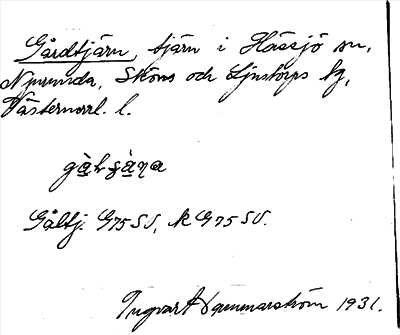 Gårdtjärn, tjärn i Hässjö sn,
Njurunda, Sköns och Ljustorps tg,
Västernorrl. l.
Gåltj. G75SV, K G75SV.
Ingvar Hammarström 1931.